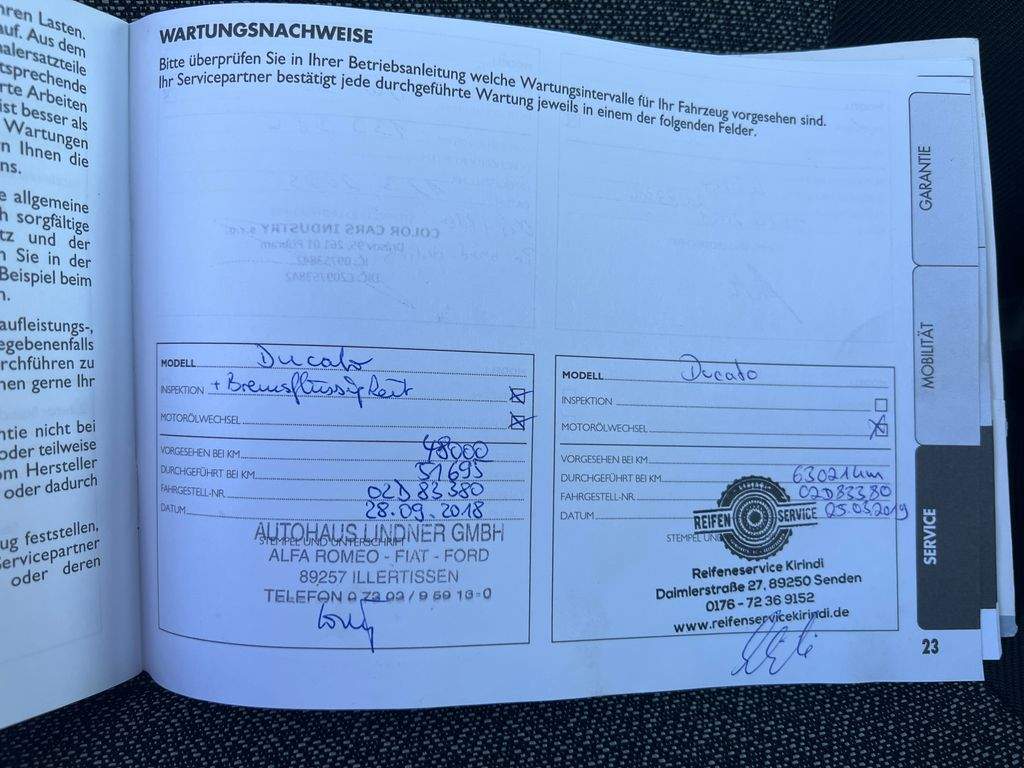 hren Lasten.
auf. Aus dem
nalersatzteile
tsprechende
rte Arbeiten
ist besser als
Wartungen
n Ihnen die
ns.
e allgemeine
h sorgfältige
tz und der
n Sie in der
Beispiel beim
n.
aufleistungs-,
egebenenfalls
rchführen zu
nen gerne Ihr
ntie nicht bei
oder teilweise
om Hersteller
oder dadurch
ug feststellen,
Servicepartner
oder deren
WARTUNGSNACHWEISE
Bitte überprüfen Sie in Ihrer Betriebsanleitung welche Wartungsintervalle für Ihr Fahrzeug vorgesehen sind.
Ihr Servicepartner bestätigt jede durchgeführte Wartung jeweils in einem der folgenden Felder.
COLOR CARS INDUSTRY s.r.o.
MODELL Ducato
INSPEKTION + Bremsflüssigkeit
MOTORÖLWECHSEL
VORGESEHEN BEI KM 48000
DURCHGEFÜHRT BEI KM 51695
FAHRGESTELL-NR. 02D83380
DATUM 28.09.2018
STEMPEL UND UNTERSCHRIFT
AUTOHAUS LINDNER GMBH
ALFA ROMEO - FIAT - FORD
89257 ILLERTISSEN
TELEFON 0 73 03 / 9 69 13-0
MODELL Ducato
INSPEKTION
MOTORÖLWECHSEL
VORGESEHEN BEI KM
DURCHGEFÜHRT BEI KM 63021km
FAHRGESTELL-NR. 02D83380
DATUM 25.03.2019
STEMPEL UN
REIFEN SERVICE
Reifeneservice Kirindi
Daimlerstraße 27, 89250 Senden
0176 - 72 36 9152
www.reifenservicekirindi.de
GARANTIE
MOBILITÄT
SERVICE
23